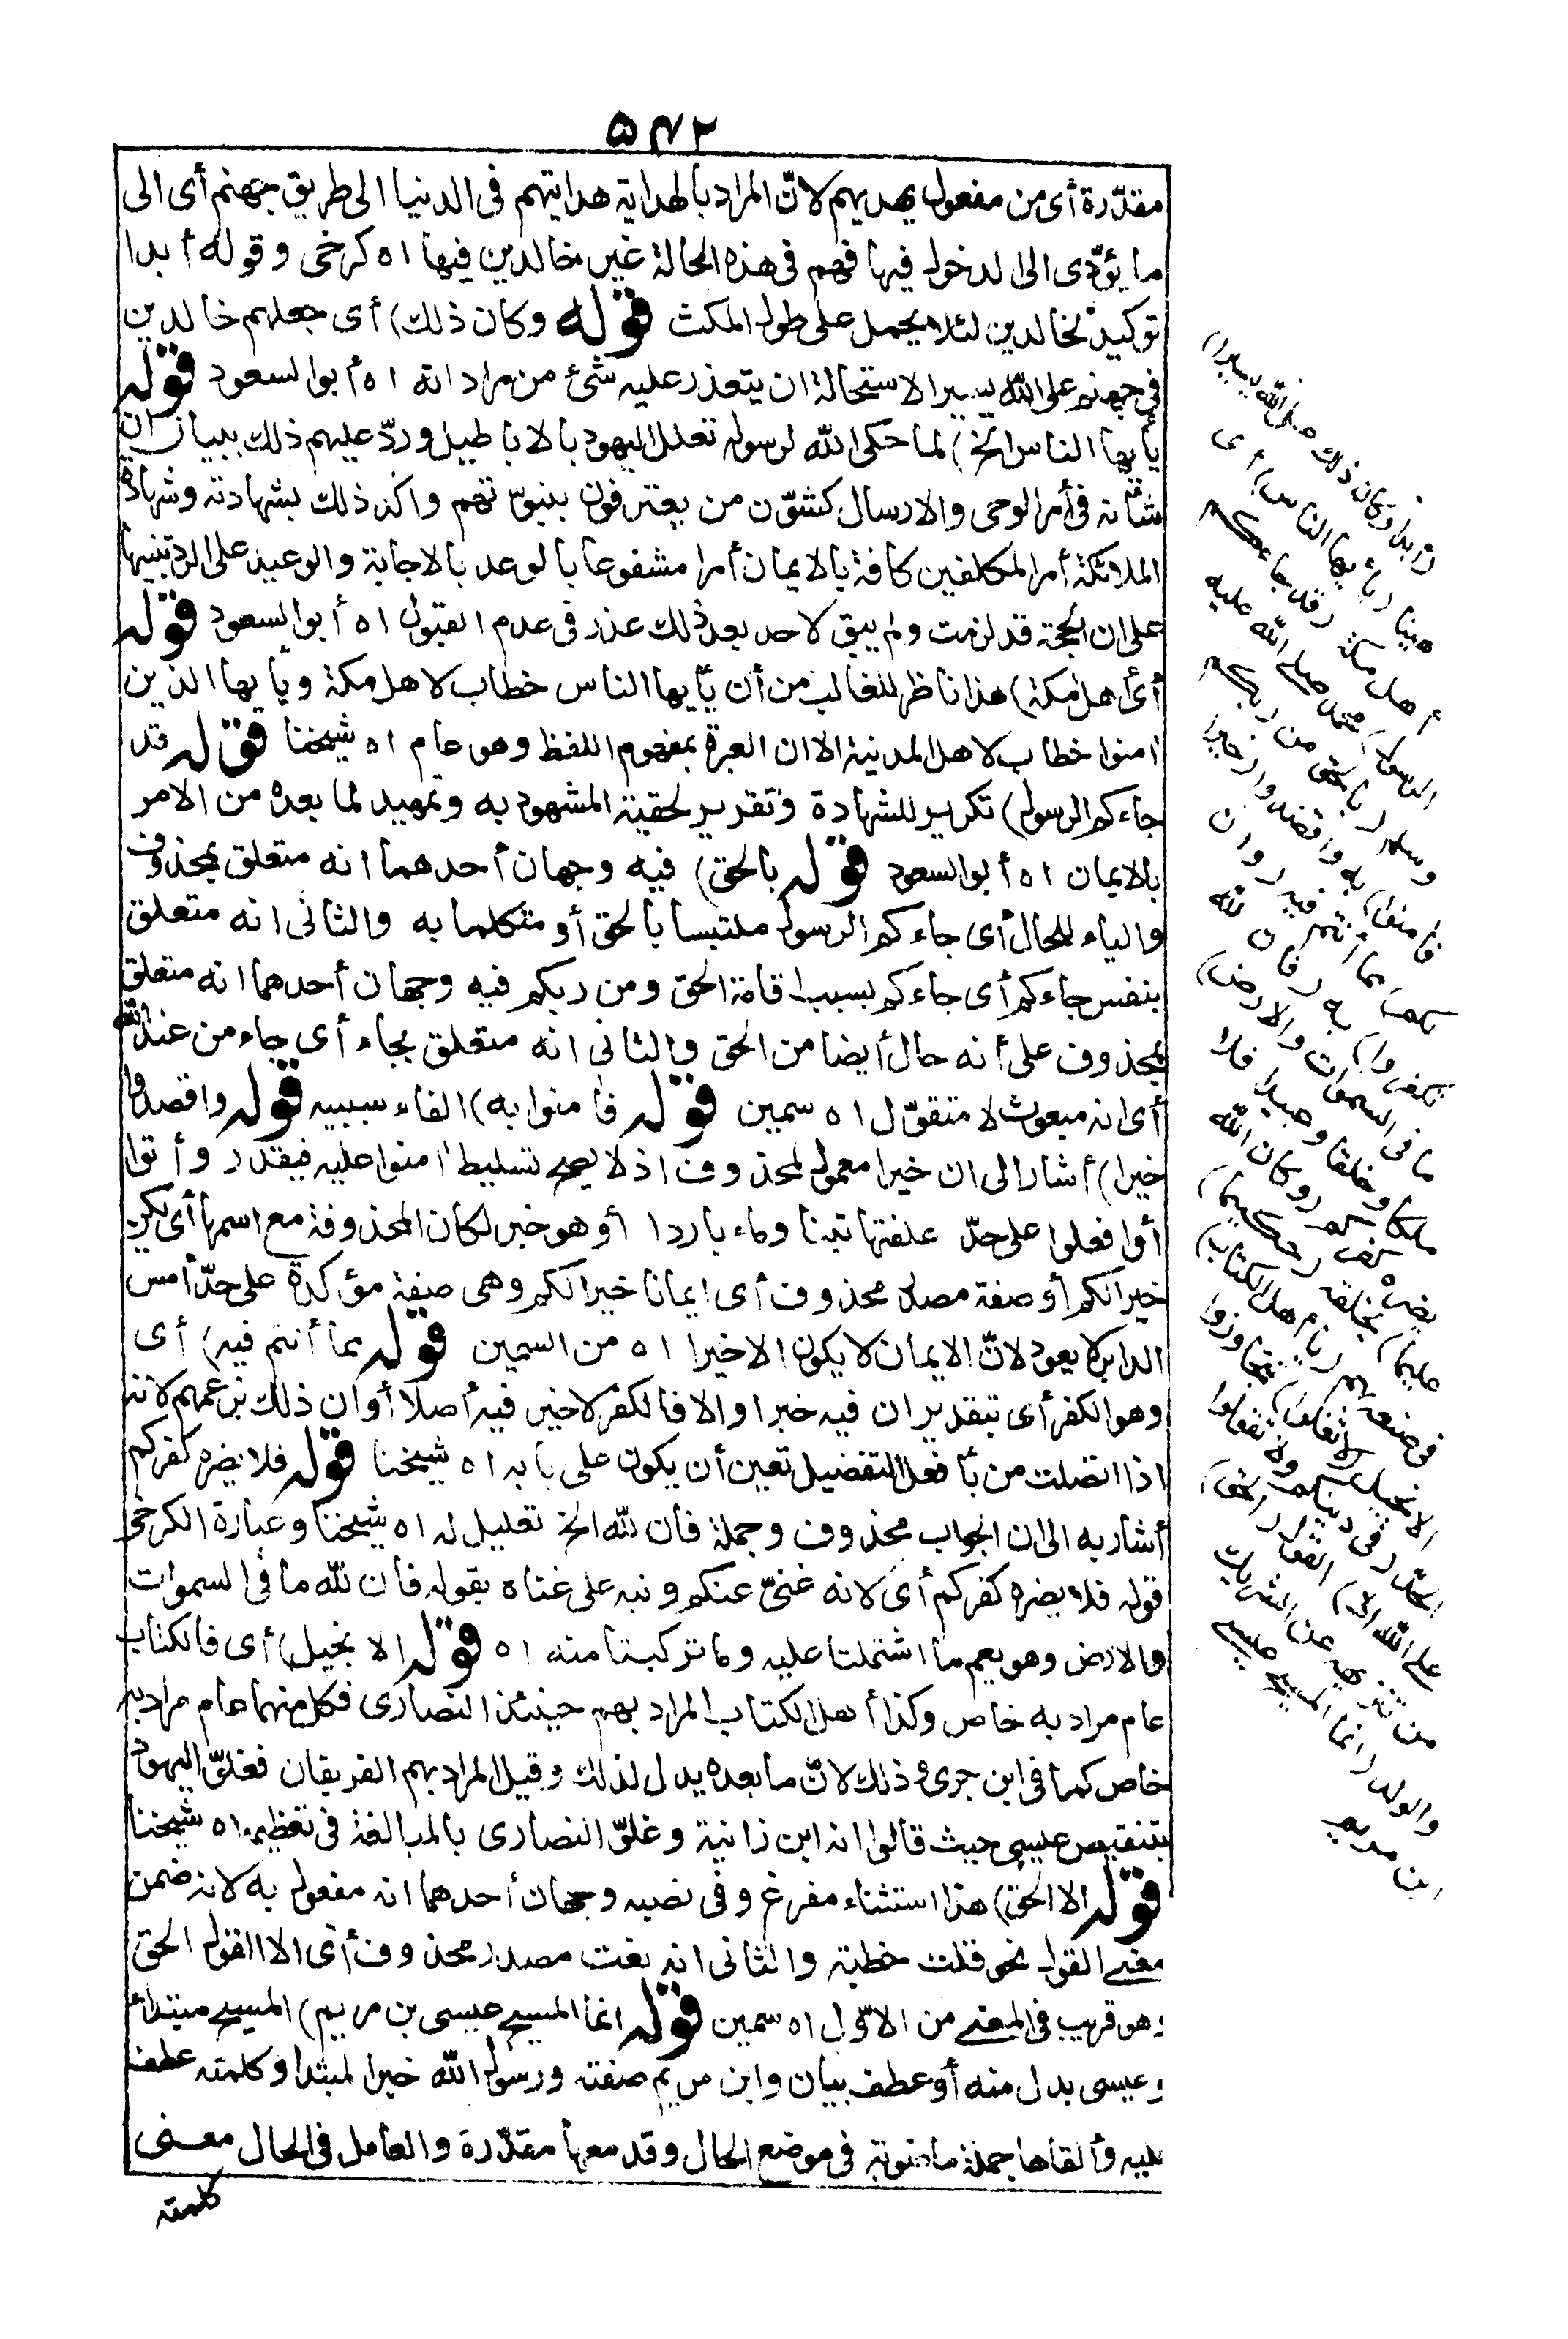 ۵۴۲
مقدّرة أى من مفعول يهديهم لانّ المراد بالهداية هدايتهم فى الدنيا الى طريق جهنم أى الى
ما يؤدّى الى الدخول فيها فهم فى هذه الحالة غير خالدين فيها اه كرخى وقوله أبدا
توكيد لخالدين لئلا يحمل على طول المكث قوله وكان ذلك) أى جعلهم خالدين
فى جهنم على الله يسيرا لاستحالة ان يتعذر عليه شئ من مراداته اه أبو السعود قوله
يأيها الناس الخ) لما حكى الله لرسوله تعلل اليهود بالاباطيل وردّ عليهم ذلك ببيان ان
شأنه فى أمر الوحى والارسال كشؤن من يعترفون بنبوّتهم واكد ذلك بشهادته وشهادة
الملائكة أمر المكلفين كافة بالايمان أمرا مشفوعا بالوعد بالاجابة والوعيد على الرد تنبيها
على ان الحجة قد لزمت ولم يبق لاحد بعد ذلك عذر فى عدم القبول اه أبو السعود قوله
أى أهل مكة) هذا ناظر للغالب من أن يأيها الناس خطاب لاهل مكة ويأيها الذين
امنوا خطاب لاهل المدينة الا ان العبرة بمفهوم اللفظ وهو عام اه شيخنا قوله قد
جاءكم الرسول) تكرير للشهادة وتقرير لحقية المشهود به وتمهيد لما بعده من الامر
بالايمان اه أبو السعود قوله بالحق) فيه وجهان أحدهما انه متعلق بمحذوف
والباء للحال أى جاءكم الرسول ملتبسا بالحق أو متكلما به والثانى انه متعلق
بنفس جاءكم أى جاءكم بسبب اقامة الحق ومن ربكم فيه وجهان أحدهما انه متعلق
بمحذوف على أنه حال أيضا من الحق والثانى انه متعلق بجاء أى جاء من عند الله
أى انه مبعوث لا متقوّل اه سمين قوله فامنوا به) الفاء سببيه قوله واقصدوا
خيرا) أشار الى ان خيرا معمول لمحذوف اذ لا يصح تسليط امنوا عليه فيقدر وأتوا
أوا فعلوا على حدّ علفتها تبنا وماء باردا أو هو خبر لكان المحذوفة مع اسمها أى يكن
خيرا لكم أو صفة مصدر محذوف أى ايمانا خيرا لكم وهى صفة مؤكدة على حدّ أمس
الدابر لا يعود لانّ الايمان لا يكون الا خيرا اه من السمين قوله مما أنتم فيه) أى
وهو الكفر أى بتقدير ان فيه خيرا والا فالكفر لا خير فيه أصلا أو ان ذلك بزعمهم لانه
اذا اتصلت من بأفعل التفضيل تعين أن يكون على بابه اه شيخنا قوله فلا يضره كفركم
أشار به الى ان الجواب محذوف وجملة فان لله الخ تعليل له اه شيخنا وعبارة الكرخى
قوله فلا يضره كفركم أى لانه غنىّ عنكم ونبه على غناه بقوله فان لله ما فى السموات
والارض وهو يعم ما اشتملتا عليه وما تركبتا منه اه قوله الانجيل) أى فالكتاب
عام مراد به خاص وكذا أهل الكتاب المراد بهم حينئذ النصارى فكل منهما عام مراد به
خاص كما فى ابن جرى وذلك لانّ ما بعده يدل لذلك وقيل المراد بهم الفريقان فغلوّ اليهود
بتنقيص عيسى حيث قالوا انه ابن زانية وغلوّ النصارى بالمبالغة فى تعظيمه اه شيخنا
قوله الا الحق) هذا استثناء مفرغ وفى نصبه وجهان أحدهما انه مفعول به لانه ضمن
معنى القول نحو قلت خطبة والثانى انه نعت مصدر محذوف أى الا القول الحق
وهو قريب فى المعنى من الاوّل اه سمين قوله انما المسيح عيسى بن مريم) المسيح مبتدأ
وعيسى بدل منه أو عطف بيان وابن مريم صفته ورسول الله خبر المبتدا وكلمته عطف
عليه وألقاها جملة ماضوية فى موضع الحال وقد معها مقدّرة والعامل فى الحال معنى
كلمته
(أبدا وكان ذلك على الله يسيرا)
هينا (يأيها الناس) أى
أهل مكة (قد جاءكم
الرسول) محمد صلى الله عليه
وسلم (بالحق من ربكم
فامنوا) به واقصدوا (خيرا
لكم) مما أنتم فيه (وان
تكفروا) به (فان لله
ما فى السموات والارض)
ملكا وخلقا وعبيدا فلا
يضره كفركم (وكان الله
عليما) بخلقه (حكيما)
فى صنعه بهم (يأهل الكتاب)
الانجيل (لا تغلوا) تتجاوزوا
الحدّ (فى دينكم ولا تقولوا
على الله الا) القول (الحق)
من تنزيهه عن الشريك
والولد (انما المسيح عيسى
ابن مريم